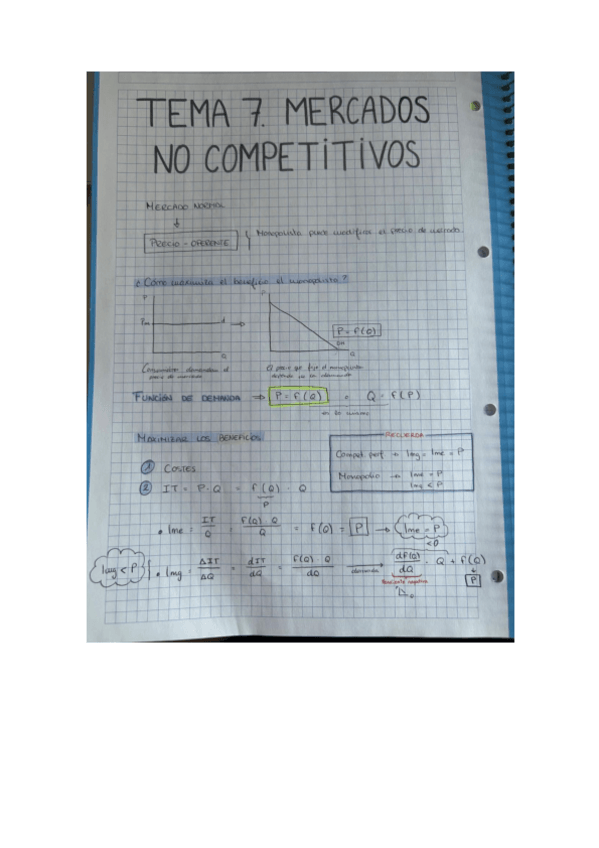 TEMA 7. MERCADOS
NO COMPETITIVOS
MERCADO NORMAL
PRECIO - OFERENTE
Monopolista puede modificar el precio de mercado.
¿Cómo maximiza el beneficio el monopolista?
P
Pm
d
Q
P
P = f(Q)
Q
Consumidores demandan al
precio de mercado
El precio que fija el monopolista
depende de la demanda
FUNCIÓN DE DEMANDA ⇒ P = f(Q) Q = f(P)
MAXIMIZAR LOS BENEFICIOS
RECUERDA
Compet. perf → Img = Ime = P
Monopolio → Ime = P
Img < P
1 COSTES
2 IT = P · Q = f(Q) · Q
P
• Ime = IT/Q = f(Q) · Q/Q = f(Q) = P → Ime = P
<0
Img < P { • Img = ΔIT/ΔQ = dIT/dQ = f(Q) · Q/dQ → df(Q)/dQ · Q + f(Q)
demanda
P